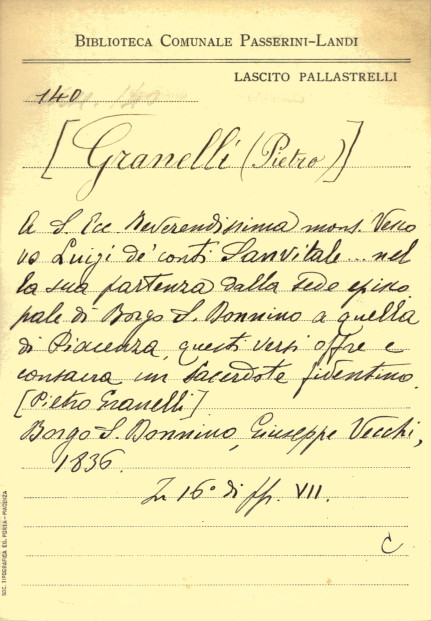 BIBLIOTECA COMUNALE PASSERINI-LANDI
LASCITO PALLASTRELLI
140
[Granelli (Pietro)]
A S. Ecc. Reverendissima mons. Vesco
vo Luigi de' conti Sanvitale... nel
la sua partenza dalla sede episco
pale di Borgo S. Donnino a quella
di Piacenza, questi versi offre e
consacra un sacerdote fidentino.
[Pietro Granelli]
Borgo S. Donnino, Giuseppe Vecchi,
1836.
In 16° di pp. VII.
C
SOC. TIPOGRAFICA ED. PORTA - PIACENZA